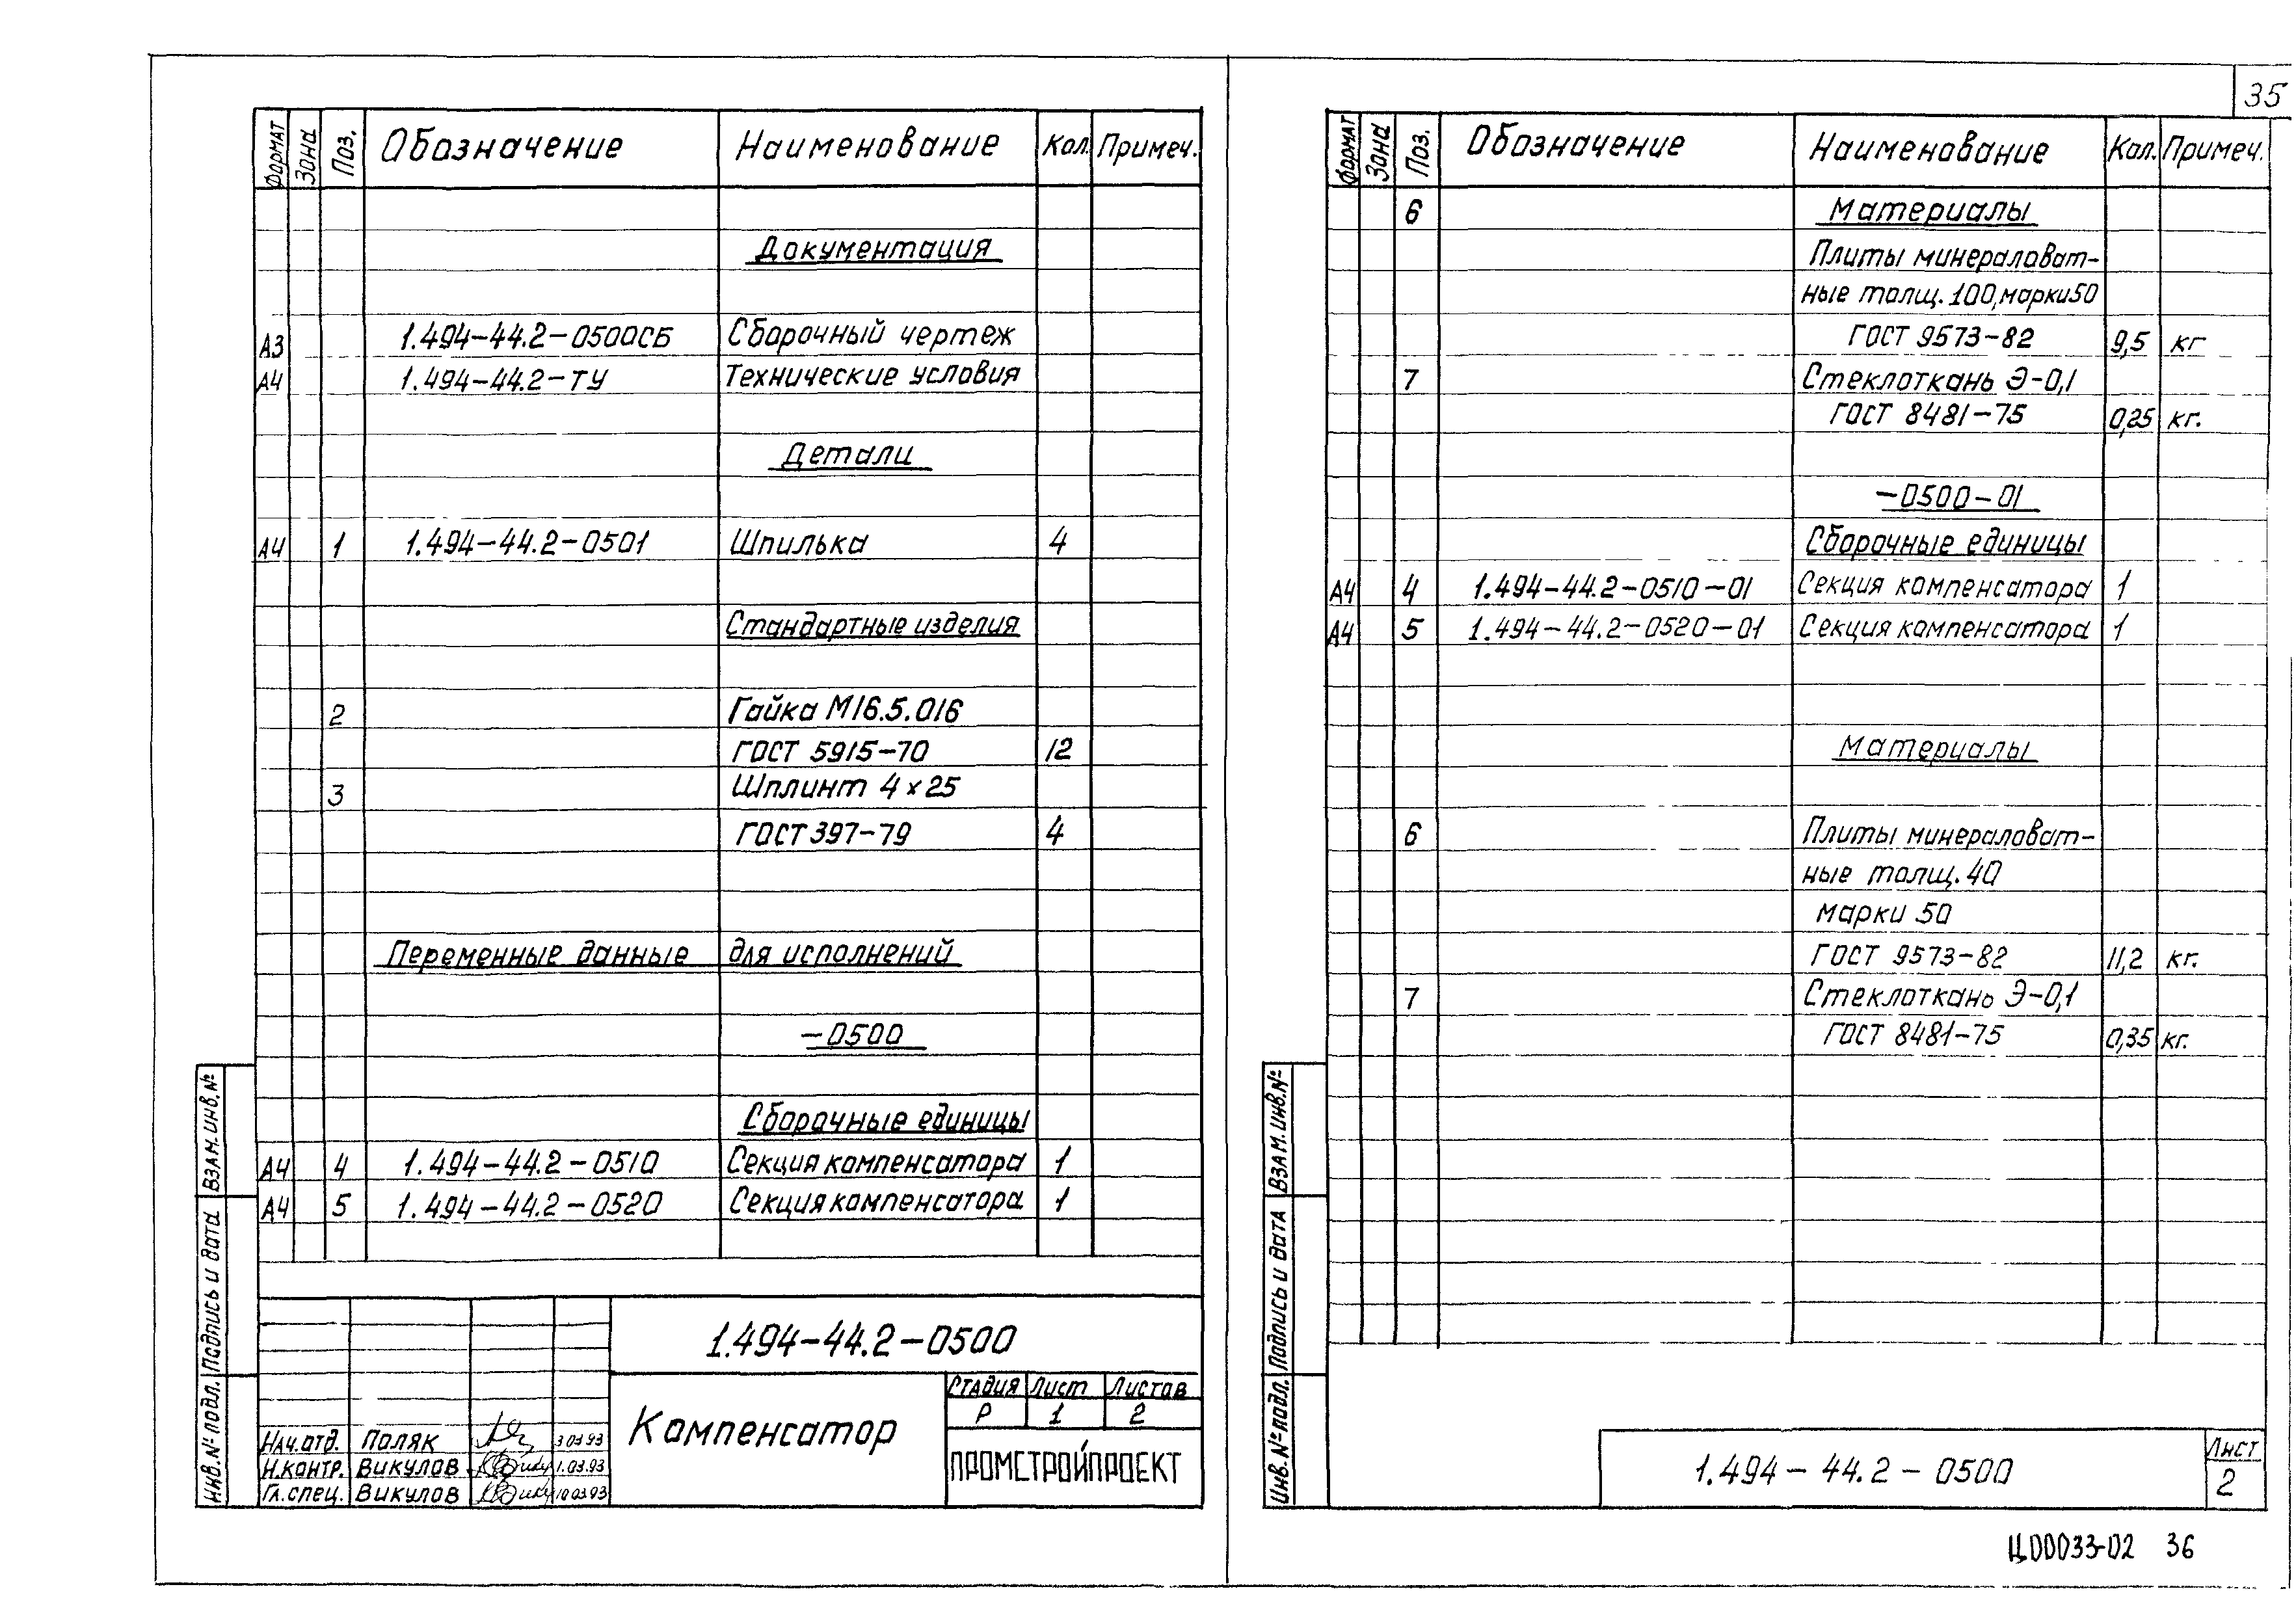 35
Формат Зона Поз. Обозначение Наименование Кол. Примеч.
Документация
А3 1.494-44.2-0500СБ Сборочный чертеж
А4 1.494-44.2-ТУ Технические условия
Детали
А4 1 1.494-44.2-0501 Шпилька 4
Стандартные изделия
2 Гайка М16.5.016
ГОСТ 5915-70 12
3 Шплинт 4×25
ГОСТ 397-79 4
Переменные данные для исполнений
-0500
Сборочные единицы
А4 4 1.494-44.2-0510 Секция компенсатора 1
А4 5 1.494-44.2-0520 Секция компенсатора 1
Взам. инв. №
Подпись и дата
Инв. № подл.
1.494-44.2-0500
Компенсатор
Стадия Лист Листов
Р 1 2
ПРОМСТРОЙПРОЕКТ
Нач. отд. Поляк 3.03.93
Н. контр. Викулов 1.03.93
Гл. спец. Викулов 10.03.93
Формат Зона Поз. Обозначение Наименование Кол. Примеч.
6 Материалы
Плиты минераловат-
ные толщ. 100, марки 50
ГОСТ 9573-82 9,5 кг
7 Стеклоткань Э-0,1
ГОСТ 8481-75 0,25 кг.
-0500-01
Сборочные единицы
А4 4 1.494-44.2-0510-01 Секция компенсатора 1
А4 5 1.494-44.2-0520-01 Секция компенсатора 1
Материалы
6 Плиты минераловат-
ные толщ. 40
марки 50
ГОСТ 9573-82 11,2 кг.
7 Стеклоткань Э-0,1
ГОСТ 8481-75 0,35 кг.
Взам. инв. №
Подпись и дата
Инв. № подл.
1.494-44.2-0500
Лист
2
Ц00033-02 36